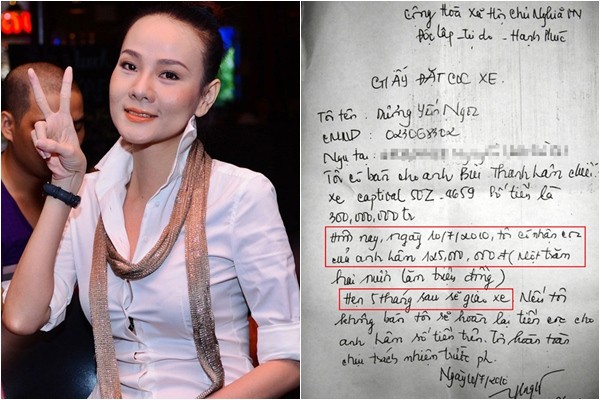 Cộng Hoà Xã Hội Chủ Nghĩa VN
Độc Lập - Tự do - Hạnh Phúc
GIẤY ĐẶT CỌC XE
Tôi tên : Dương Yến Ngọc
CMND : 023068302
Ngụ tại :
Tôi có bán cho anh Bùi Thanh Hân chiếc
xe captival 50Z - 4659 số tiền là
300,000,000 tr
Hôm nay, ngày 10/7/2010, tôi có nhận cọc
của anh Hân 125,000,000 đ (Một trăm
hai mươi lăm triệu đồng)
Hẹn 5 tháng sau sẽ giao xe. Nếu tôi
không bán tôi sẽ hoàn lại tiền cọc cho
anh Hân số tiền trên. Tôi hoàn toàn
chịu trách nhiệm trước pl.
Ngày 10/7/2010